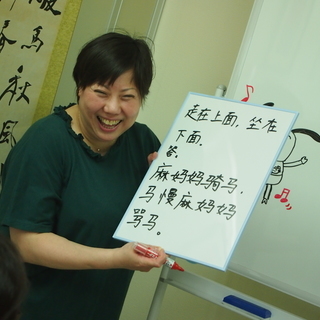 走在上面，坐在
下面。
答。
麻妈妈骑马，
马慢麻妈妈
骂马。
馬
秋
風